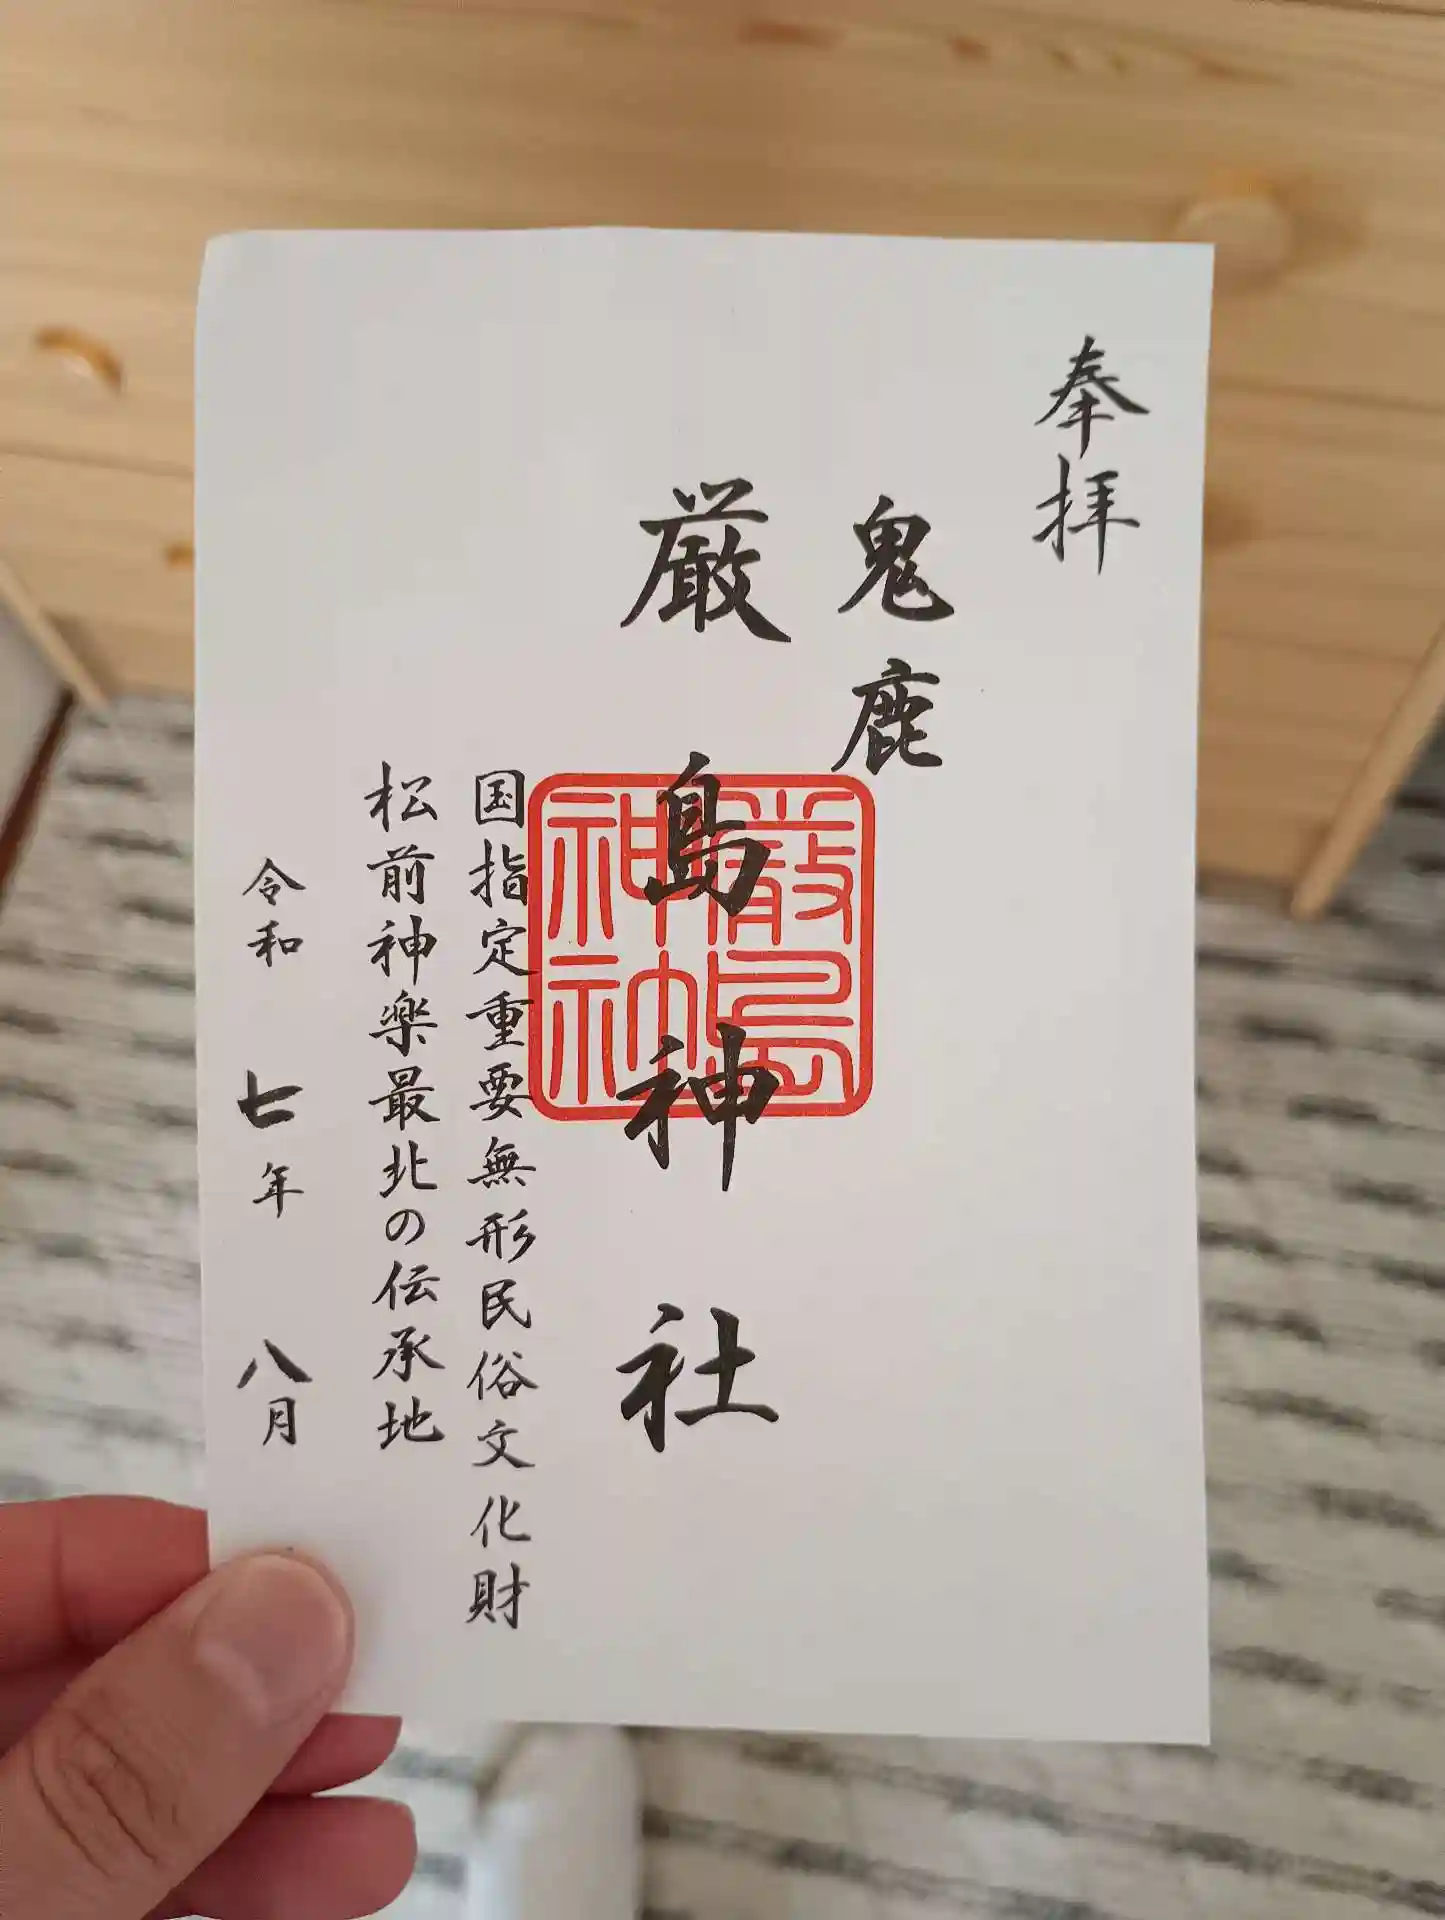 奉拝
鬼鹿
厳島神社
厳嶋神社
国指定重要無形民俗文化財
松前神楽最北の伝承地
令和七年八月